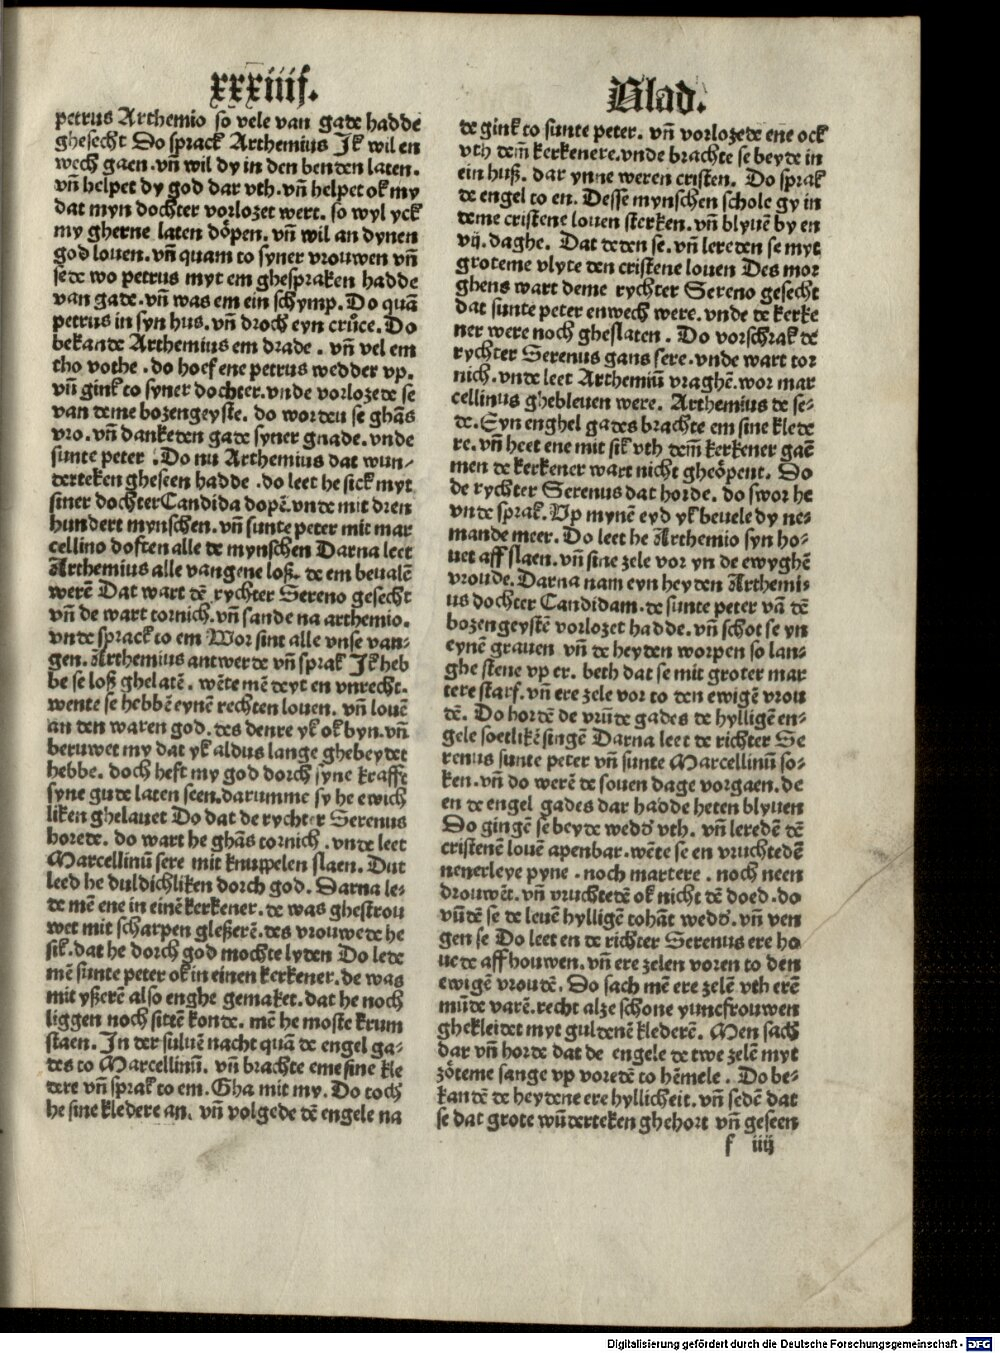 xxxiiij.
petrus Arthemio so vele van gade hadde
ghesecht Do sprack Arthemius Jk wil en
wech gaen. vn̄ wil dy in den benden laten.
vn̄ helpet dy god dar vth. vn̄ helpet ok my
dat myn dochter vorlozet wert. so wyl yck
my gherne laten dôpen. vn̄ wil an dynen
god louen. vn̄ quam to syner vrouwen vn̄
sede wo petrus myt em ghespraken hadde
van gade. vn̄ was em ein schymp. Do quā
petrus in syn hus. vn̄ droch eyn crůce. Do
bekande Arthemius em drade. vn̄ vel em
tho vothe. do hoef ene petrus wedder vp.
vn̄ gink to syner dochter. vnde vorlozede se
van deme bozengeyste. do worden se ghās
vro. vn̄ dankeden gade syner gnade. vnde
sunte peter. Do nu Arthemius dat wun-
derteken gheseen hadde. do leet he sick myt
siner dochter Candida dopē. vnde mit dren
hundert mynschen. vn̄ sunte peter mit mar
cellino doften alle de mynschen Darna leet
Arthemius alle vangene loß. de em beualē
werē Dat wart dē rychter Sereno gesecht
vn̄ de wart tornich. vn̄ sande na arthemio.
vnde sprack to em Wor sint alle vnse van-
gen. Arthemius antwerde vn̄ sprak Jk heb
be se loß ghelatē. wēte mē deyt en vnrecht.
wente se hebbē eynē rechten louen. vn̄ louē
an den waren god. des denre yk ok byn. vn̄
beruwet my dat yk aldus lange ghebeydet
hebbe. doch heft my god dorch syne kraffe
syne gude laten seen. darumme sy he ewich
liken ghelauet Do dat de rychter Serenus
horede. do wart he ghās tornich. vnde leet
Marcellinū sere mit knuppelen slaen. Dut
leed he duldichliken dorch god. Darna le-
de mē ene in einē kerkener. de was ghestrou
wet mit scharpen gleßerē. des vrouwede he
sik. dat he dorch god mochte lyden Do lede
mē sunte peter ok in einen kerkener. de was
mit yßerē also enghe gemaket. dat he noch
liggen noch sittē konde. mē he moste krum
staen. In der suluē nacht quā de engel ga-
des to Marcellinū. vn̄ brachte eme sine kle
dere vn̄ sprak to em. Gha mit my. Do toch
he sine kledere an. vn̄ volgede dē engele na
Blad.
de gink to sunte peter. vn̄ vorlozede ene ock
vth dem̄ kerkenere. vnde brachte se beyde in
ein huß. dar ynne weren cristen. Do sprak
de engel to en. Desse mynschen schole gy in
deme cristene louen sterken. vn̄ blyuē by en
vij. daghe. Dat deden se. vn̄ lereden se myt
groteme vlyte den cristene louen Des mor
ghens wart deme rychter Sereno gesecht
dat sunte peter enwech were. vnde de kerke
ner were noch gheslaten. Do vorschrak de
rychter Serenus gans sere. vnde wart tor
nich. vnde leet Arthemiū vraghē. wor mar
cellinus ghebleuen were. Arthemius de se-
de. Eyn enghel gades brachte em sine klede
re. vn̄ heet ene mit sik vth dem̄ kerkener gaē
men de kerkener wart nicht gheôpent. Do
de rychter Serenus dat horde. do swor he
vnde sprak. Vp mynē eyd yk beuele dy ne-
mande meer. Do leet he Arthemio syn ho-
uet aff slaen. vn̄ sine zele vor yn de ewyghē
vroude. Darna nam eyn heyden Arthemi-
us dochter Candidam. de sunte peter vā dē
bozengeystē vorlozet hadde. vn̄ schot se yn
eynē grauen vn̄ de heyden worpen so lan-
ghe stene vp er. beth dat se mit groter mar
tere starf. vn̄ ere zele vor to den ewigē vrou
dē. Do hordē de vrūde gades de hylligē en-
gele soetlikē singē Darna leet de richter Se
renus sunte peter vn̄ sunte Marcellinū so-
ken. vn̄ do werē de souen dage vorgaen. de
en de engel gades dar hadde heten blyuen
Do gingē se beyde wedd' vth. vn̄ leredē dē
cristenē louē apenbar. wēte se en vruchtedē
nenerleye pyne. noch martere. noch neen
drouwēt. vn̄ vruchtedē ok nicht dē doed. do
vūdē se de leuē hylligē tohāt wedd'. vn̄ ven
gen se Do leet en de richter Serenus ere ho
uede aff houwen. vn̄ ere zelen voren to den
ewigē vroudē. Do sach mē ere zelē vth erē
mūde varē. recht alze schone yuncfrouwen
ghekleidet myt guldenē klederē. Men sach
dar vn̄ horde dat de engele de twe zelē myt
zôteme sange vp voredē to hēmele. Do be-
kandē de heydene ere hyllicheit. vn̄ sedē dat
se dat grote wūderteken ghehort vn̄ geseen
f iiij
Digitalisierung gefördert durch die Deutsche Forschungsgemeinschaft - DFG